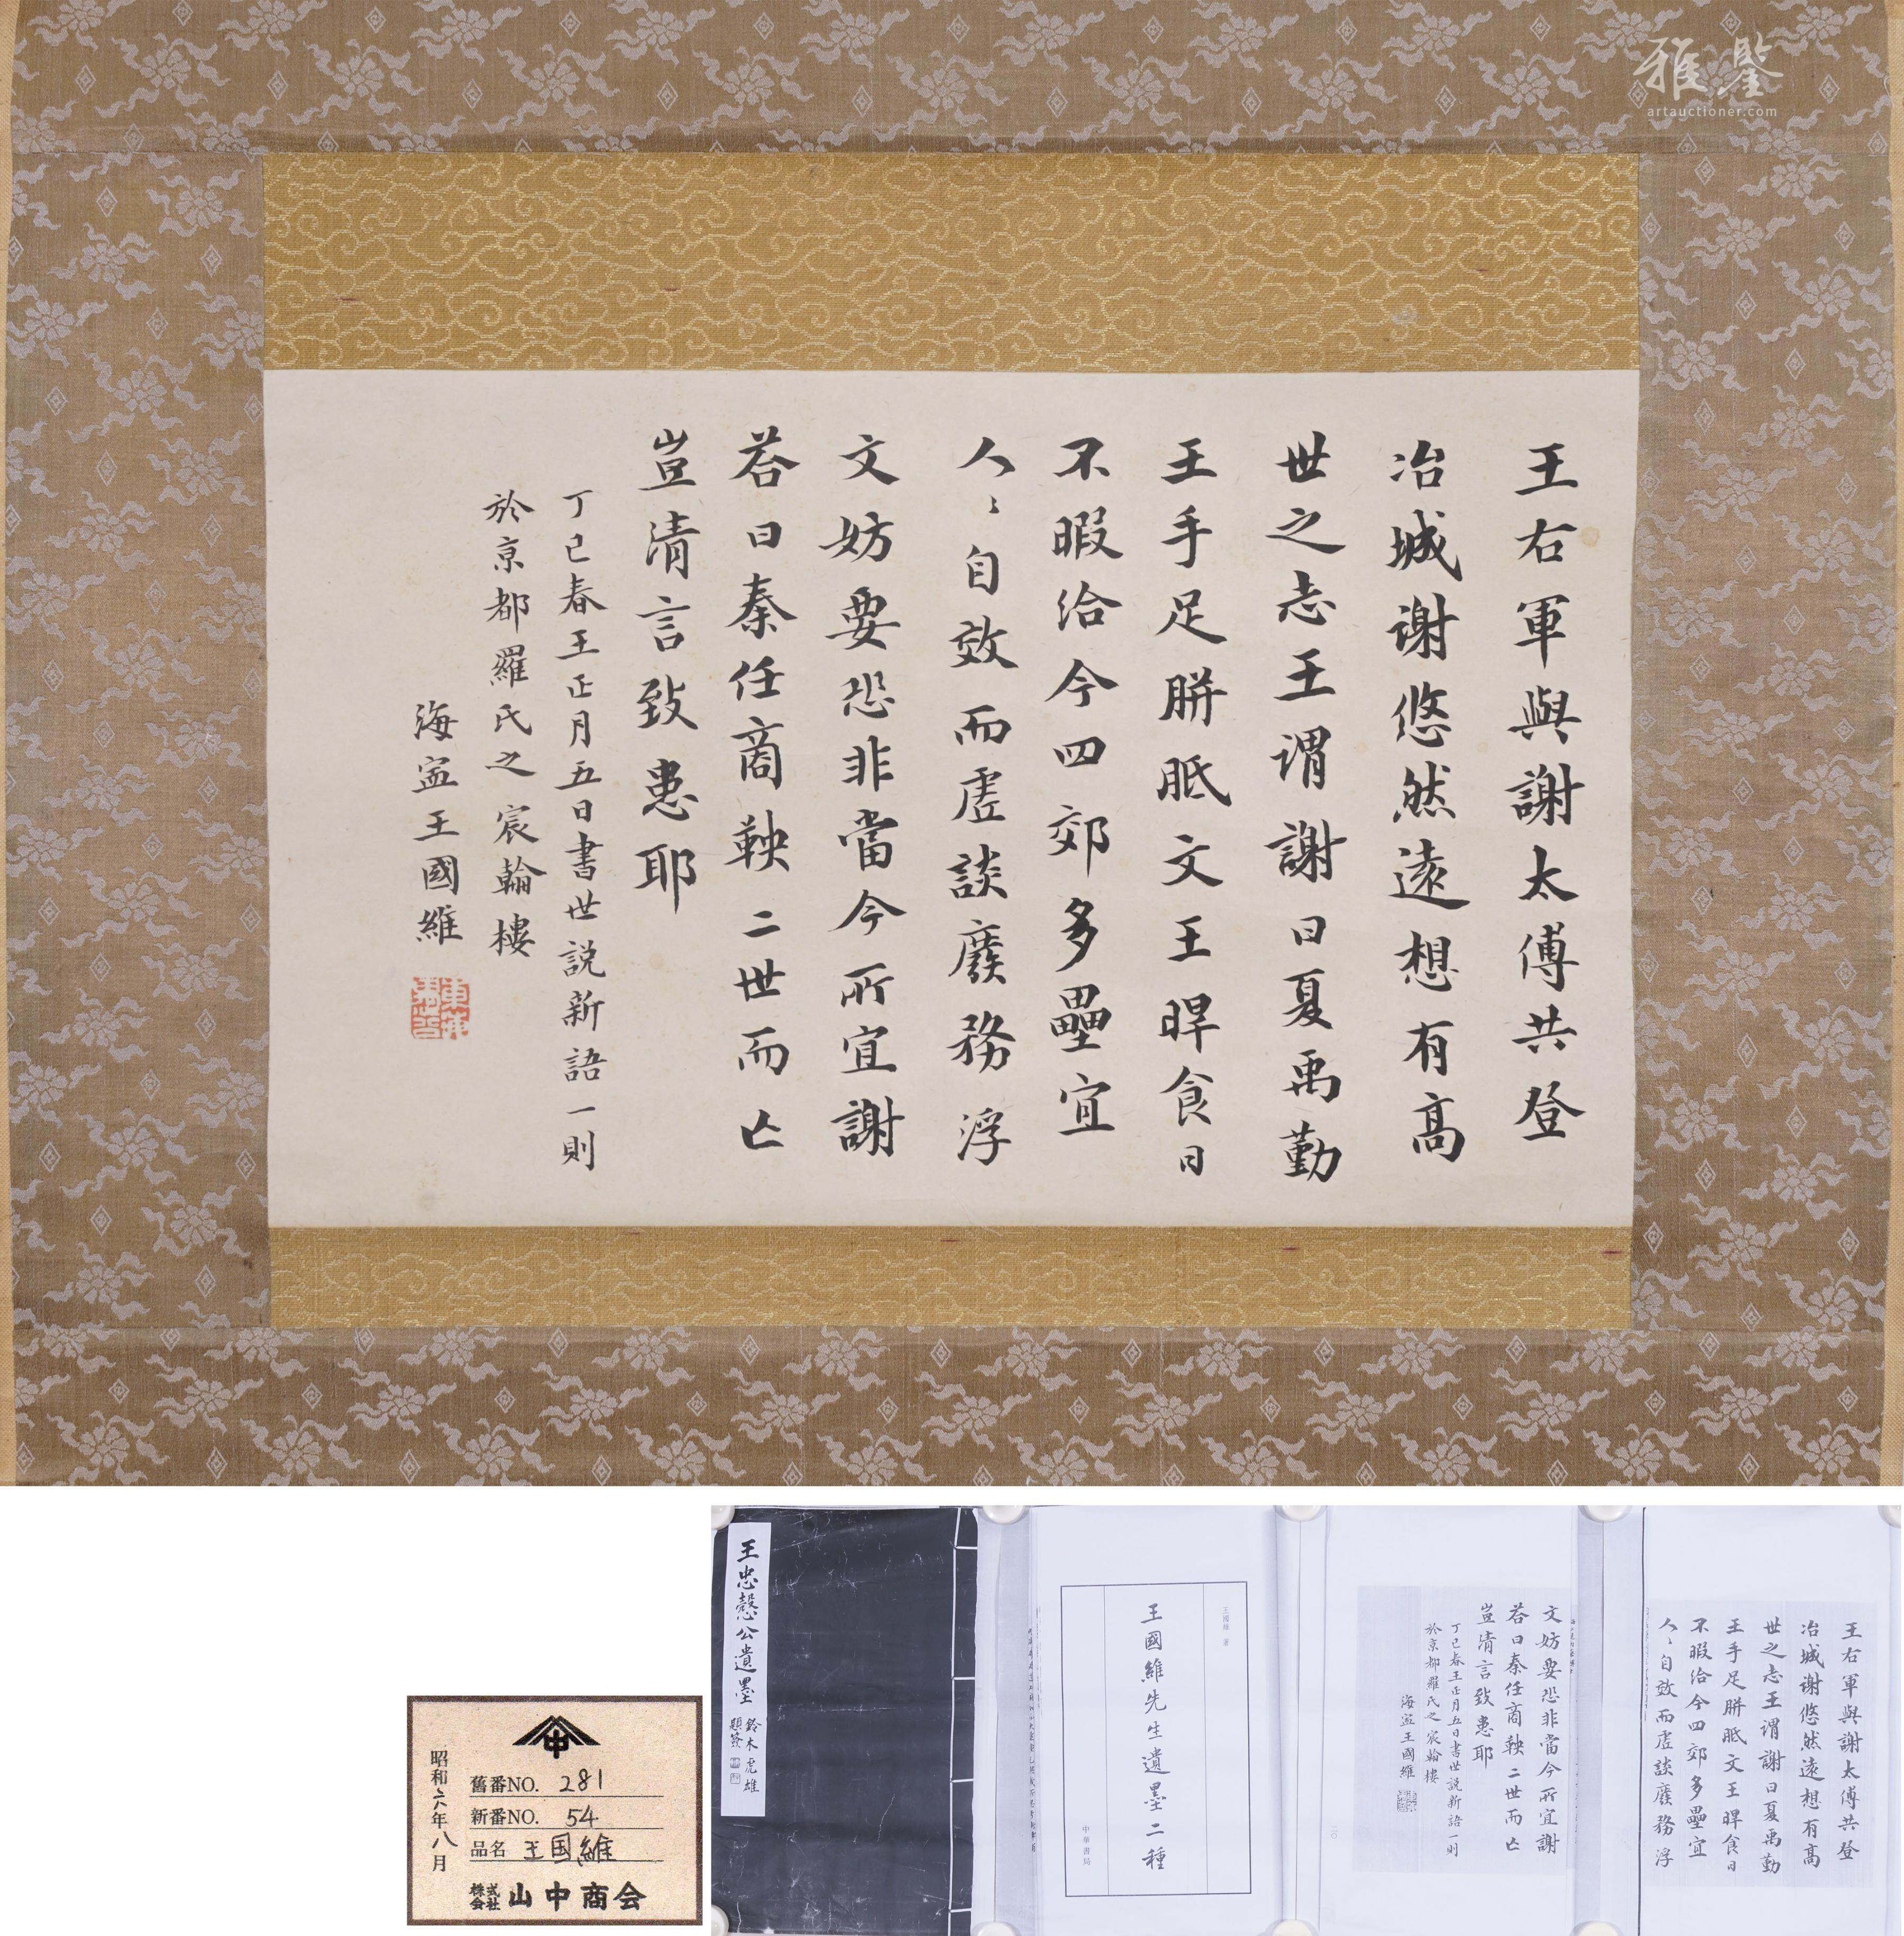 雅鑒
artauctioner.com
王右軍與謝太傅共登
冶城謝悠然遠想有高
世之志王謂謝曰夏禹勤
王手足胼胝文王旰食日
不暇給今四郊多壘宜
人〻自效而虛談廢務浮
文妨要恐非當今所宜謝
荅曰秦任商鞅二世而亡
豈清言致患耶
丁巳春王正月五日書世説新語一則
於京都羅氏之宸翰樓
海寍王國維
昭和六年八月
舊番NO. 281
新番NO. 54
品名 王国維
株式会社 山中商会
王忠慤公遺墨
鈴木虎雄
題簽
王國維 著
王國維先生遺墨二種
中華書局
王右軍與謝太傅共登
冶城謝悠然遠想有高
世之志王謂謝曰夏禹勤
王手足胼胝文王旰食日
不暇給今四郊多壘宜
人〻自效而虛談廢務浮
文妨要恐非當今所宜謝
荅曰秦任商鞅二世而亡
豈清言致患耶
丁巳春王正月五日書世説新語一則
於京都羅氏之宸翰樓
海寍王國維